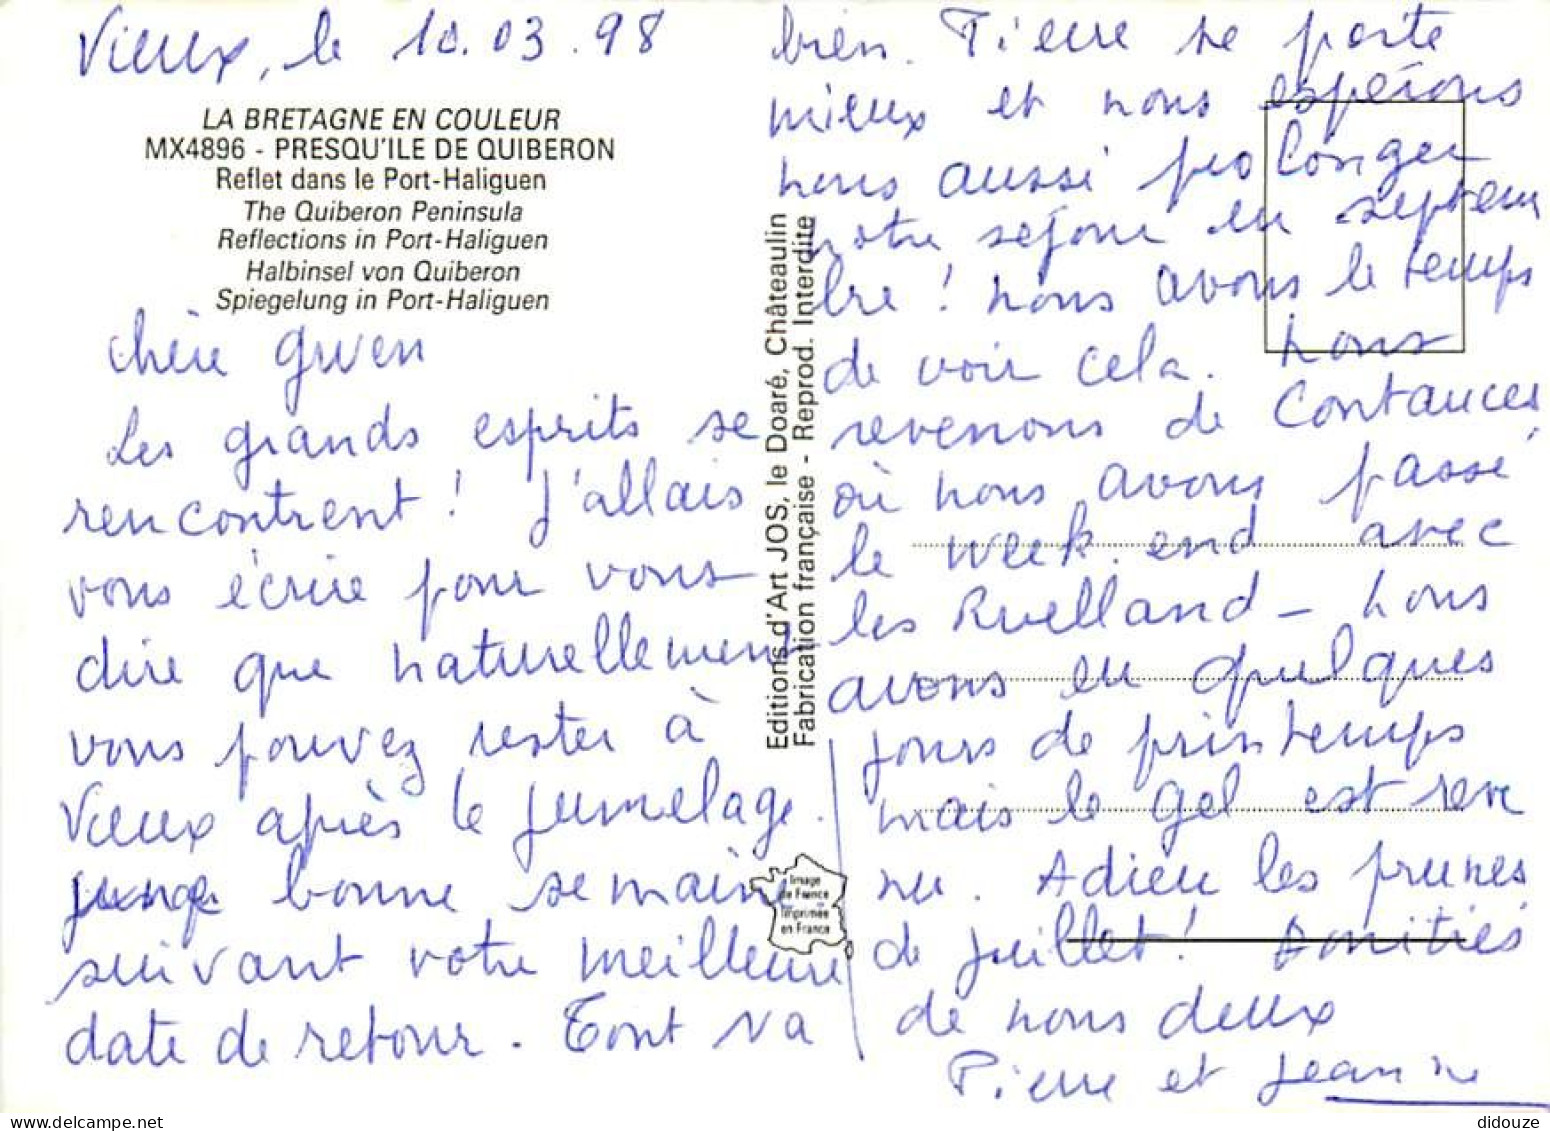 Vieux, le 10.03.98
LA BRETAGNE EN COULEUR
MX4896 - PRESQU'ILE DE QUIBERON
Reflet dans le Port-Haliguen
The Quiberon Peninsula
Reflections in Port-Haliguen
Halbinsel von Quiberon
Spiegelung in Port-Haliguen
Chère Gwen
Les grands esprits se
rencontrent ! J'allais
vous écrire pour vous
dire que naturellement
vous pouvez rester à
Vieux après le jumelage.
bonne semaine
suivant votre meilleure
date de retour. Tout va
bien. Pierre se porte
mieux et nous espérons
nous aussi prolonger
notre séjour en septem
bre ! nous avons le temps
de voir cela. Nous
revenons de Coutances
où nous avons passé
le week.end avec
les Ruelland - Nous
avons eu quelques
jours de printemps
mais le gel est reve
nu. Adieu les prunes
de juillet ! Amitiés
de nous deux
Pierre et Jeanne
Editions d'Art JOS, le Doaré, Châteaulin
Fabrication française - Reprod. Interdite
Image
de France
Imprimée
en France
didouze